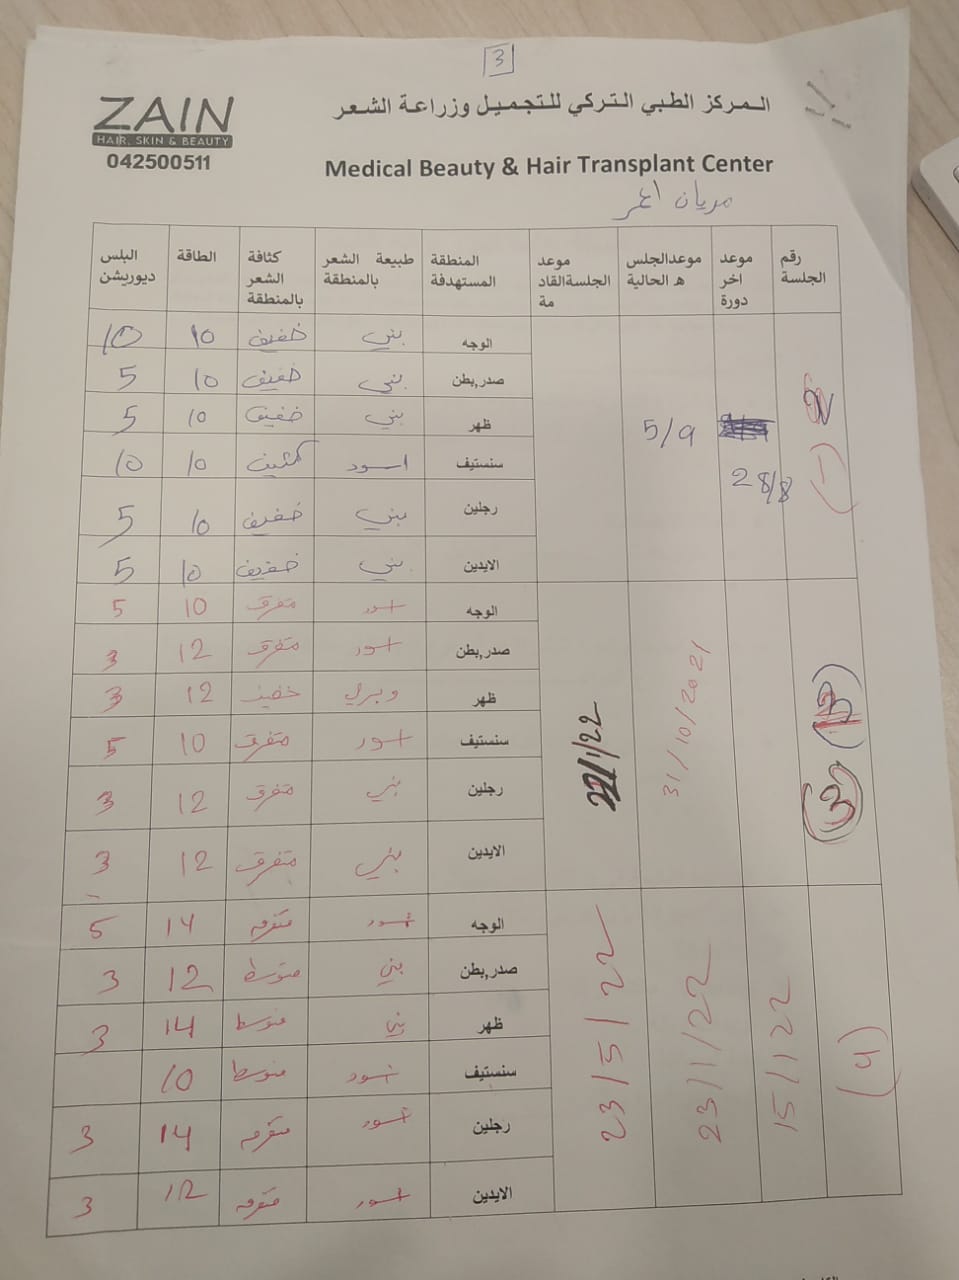 3
ZAIN
HAIR, SKIN & BEAUTY
042500511
المركز الطبي التركي للتجميل وزراعة الشعر
Medical Beauty & Hair Transplant Center
مريان
رقم الجلسة | موعد اخر دورة | موعدالجلسه الحالية | موعد الجلسةالقادمة | المنطقة المستهدفة | طبيعة الشعر بالمنطقة | كثافة الشعر بالمنطقة | الطاقة | البلس ديوريشن
2 | 28/8 | 5/9
الوجه | بني | خفيف | 10 | 10
صدر,بطن | بني | خفيف | 10 | 5
ظهر | بني | خفيف | 10 | 5
سنستيف | اسود | كثيف | 10 | 10
رجلين | بني | خفيف | 10 | 5
الايدين | بني | خفيف | 10 | 5
(3) | 31/10/2021 | /1/22
الوجه | اسود | متفرق | 10 | 5
صدر,بطن | اسود | متفرق | 12 | 3
ظهر | وبري | خفيف | 12 | 3
سنستيف | اسود | متفرق | 10 | 5
رجلين | بني | متفرق | 12 | 3
الايدين | بني | متفرق | 12 | 3
(4) | 15/1/22 | 23/1/22 | 23/5/22
الوجه | اسود | متفرق | 14 | 5
صدر,بطن | بني | متوسط | 12 | 3
ظهر | بني | متوسط | 14 | 3
سنستيف | اسود | متوسط | 10
رجلين | اسود | متفرق | 14 | 3
الايدين | اسود | متفرق | 12 | 3